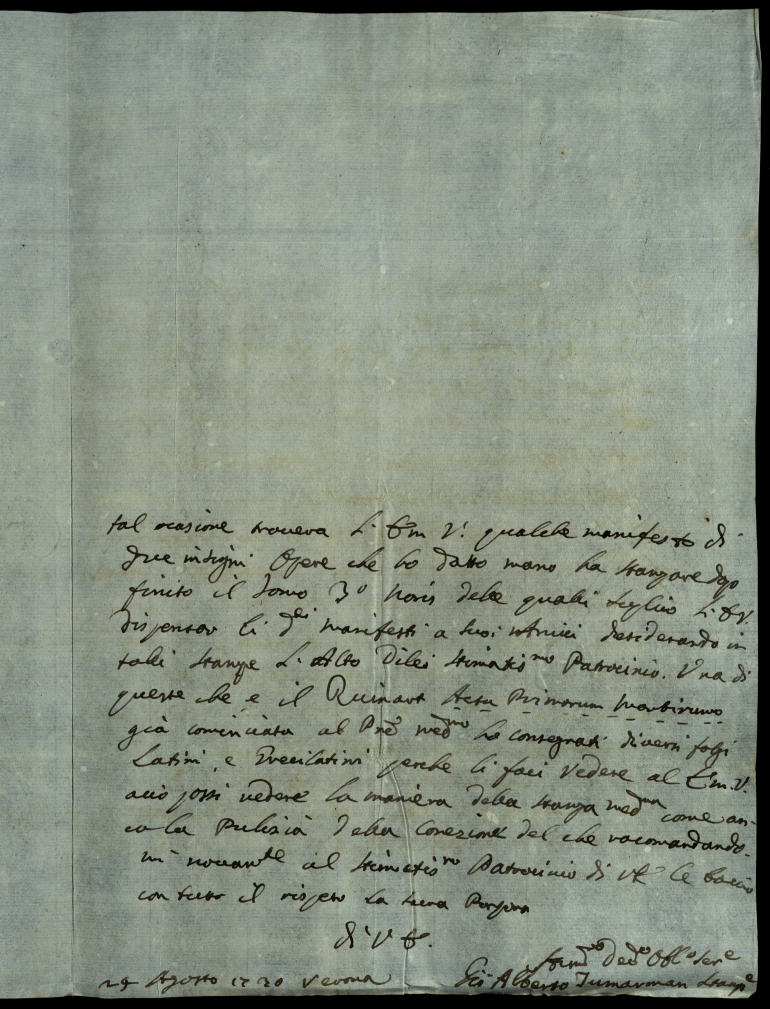 tal ocasione trovera L. Em V. qualche manifesto di
due insigni Opere che ho datto mano ha stampare dopo
finito il Tomo 3º Noris dele quali suplico L. E. V.
dispensar li dei manifesti a suoi Amici desiderando in
tali stampe L. Alto Dilei stimatismo Patrocinio. Una di
queste che e il Ruinart Acta Primorum Martirum
già cominciata al Pre medmo ho consegnati diversi fogi
Latini, e Grecilatini perche li faci vedere al Em. V.
acio possi vedere la maniera della stampa medma come an-
co la Pulizia della Corezione del che racomandando-
mi novamte al stimatismo Patrocinio di VE le bacio
con tutto il rispeto la sacra Porpora
di V E.
Umo Devo Oblo Sere
29 Agosto 1730 Verona Gio Alberto Tumarman Stampe